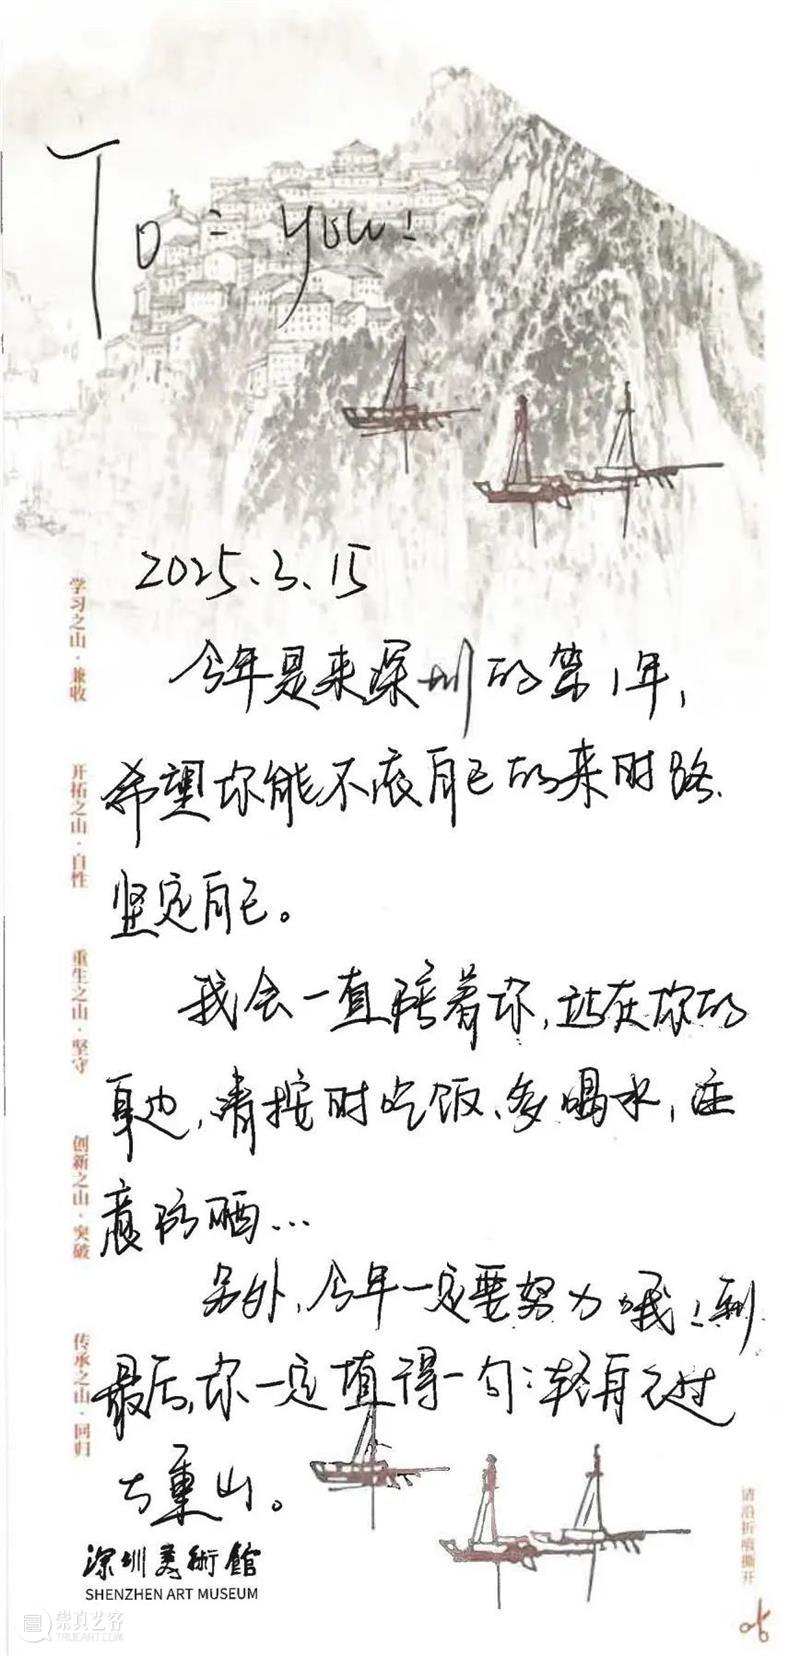 To: you!
2025.3.15
今年是来深圳的第1年,
希望你能不自己的来时路、
坚定自己。
我会一直陪着你,站在你的
身边,请按时吃饭、多喝水,注
意防晒...
另外,今年一定要努力哦!到
最后,你一定值得一句:轻舟已过
万重山。
学习之山·兼收
开拓之山·自性
重生之山·坚守
创新之山·突破
传承之山·回归
请沿折痕撕开
深圳美術館
SHENZHEN ART MUSEUM
崇真艺客
TRUEART.COM